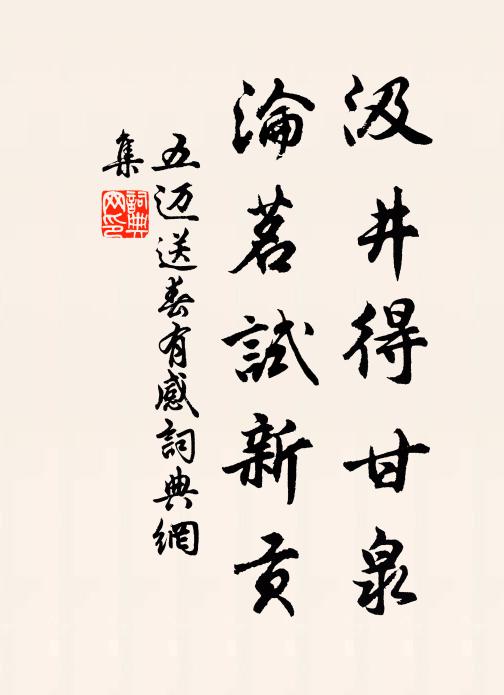 汲井得甘泉
淪茗試新貢
五迈送春有感詞典網
集
詞典
网印